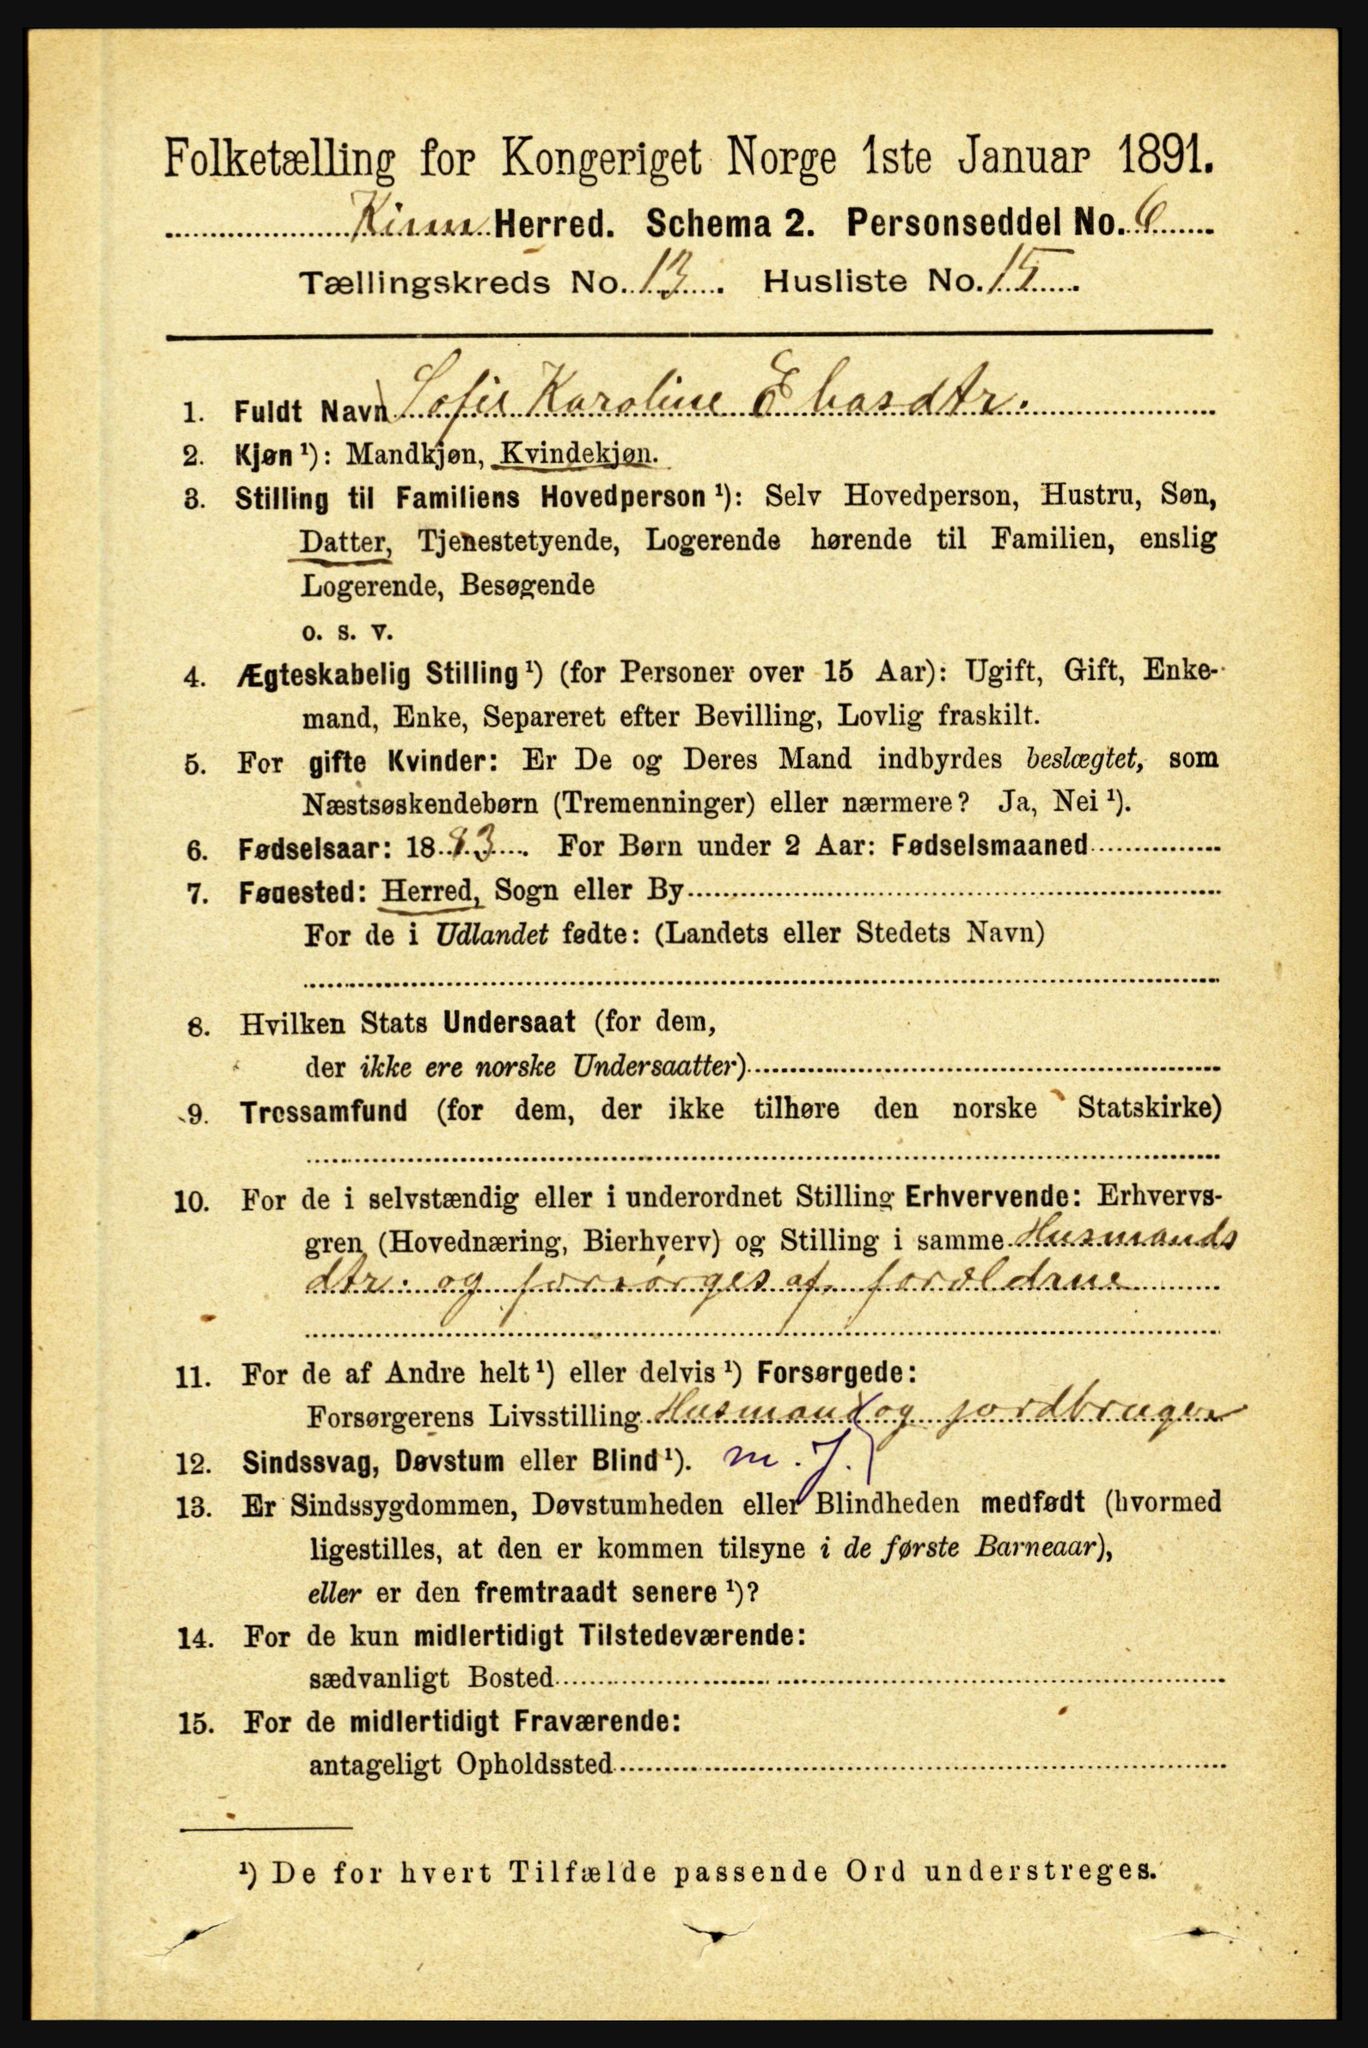 Folketælling for Kongeriget Norge 1ste Januar 1891.
Kinn Herred. Schema 2. Personseddel No. 6
Tællingskreds No. 13. Husliste No. 15.
1. Fuldt Navn Sofie Karoline Eliasdtr.
2. Kjøn ¹): Mandkjøn, Kvindekjøn.
3. Stilling til Familiens Hovedperson ¹): Selv Hovedperson, Hustru, Søn,
Datter, Tjenestetyende, Logerende hørende til Familien, enslig
Logerende, Besøgende
o. s. v.
4. Ægteskabelig Stilling ¹) (for Personer over 15 Aar): Ugift, Gift, Enke-
mand, Enke, Separeret efter Bevilling, Lovlig fraskilt.
5. For gifte Kvinder: Er De og Deres Mand indbyrdes beslægtet, som
Næstsøskendebørn (Tremenninger) eller nærmere? Ja, Nei ¹).
6. Fødselsaar: 1883. For Børn under 2 Aar: Fødselsmaaned
7. Fødested: Herred, Sogn eller By
For de i Udlandet fødte: (Landets eller Stedets Navn)
8. Hvilken Stats Undersaat (for dem,
der ikke ere norske Undersaatter)
9. Trossamfund (for dem, der ikke tilhøre den norske Statskirke)
10. For de i selvstændig eller i underordnet Stilling Erhvervende: Erhvervs-
gren (Hovednæring, Bierhverv) og Stilling i samme Husmands
dtr. og forsørges af forældrne
11. For de af Andre helt ¹) eller delvis ¹) Forsørgede:
Forsørgerens Livsstilling Husmand og jordbruger
12. Sindssvag, Døvstum eller Blind ¹). m. J.
13. Er Sindssygdommen, Døvstumheden eller Blindheden medfødt (hvormed
ligestilles, at den er kommen tilsyne i de første Barneaar),
eller er den fremtraadt senere ¹)?
14. For de kun midlertidigt Tilstedeværende:
sædvanligt Bosted
15. For de midlertidigt Fraværende:
antageligt Opholdssted
¹) De for hvert Tilfælde passende Ord understreges.